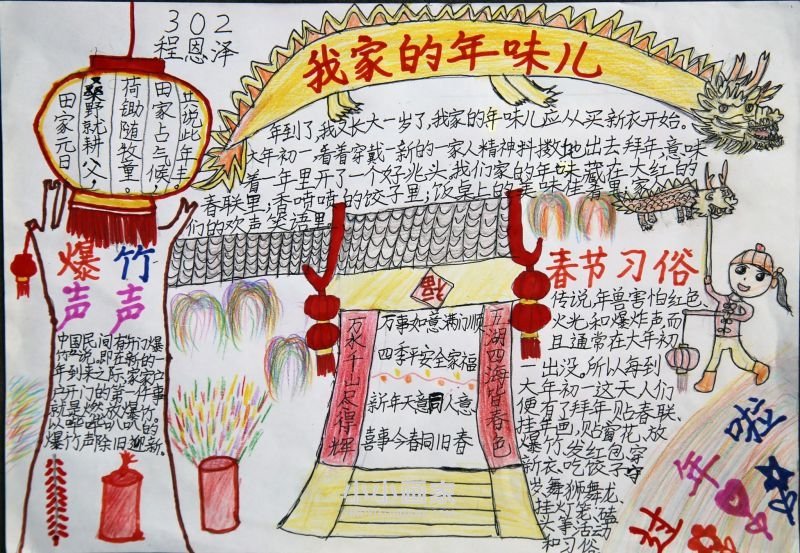 302
程恩泽
我家的年味儿
共说此年丰。
田家占气候，
荷锄随牧童。
野就耕父，
田家元日
年到了，我又长大一岁了，我家的年味儿应从买新衣开始。
大年初一看着穿戴一新的一家人精神抖擞地出去拜年，意味
着一年里开了一个好兆头，我们家的年味藏在大红的
春联里；香喷喷的饺子里；饭桌上的美味佳肴里；家人
们的欢声笑语里。
爆竹
声声
中国民间有开门爆
竹一说，即在新的一
年到来之际，家家户
户开门的第一件事
就是燃放爆竹。
以
爆竹声除旧迎新。
福
万水千山尽得辉
万事如意满门顺
四季平安全家福
新年天意同人意
喜事今春同旧春
五湖四海皆春色
春节习俗
传说，年兽害怕红色、
火光和爆炸声而
且通常在大年初
一出没。所以每到
大年初一这天人们
便有了拜年、贴春联、
挂年画，贴窗花、放
爆竹、发红包、穿
新衣、吃饺子、守
岁、舞狮舞龙、
挂灯笼、磕
头等活动
和习俗。
过年啦